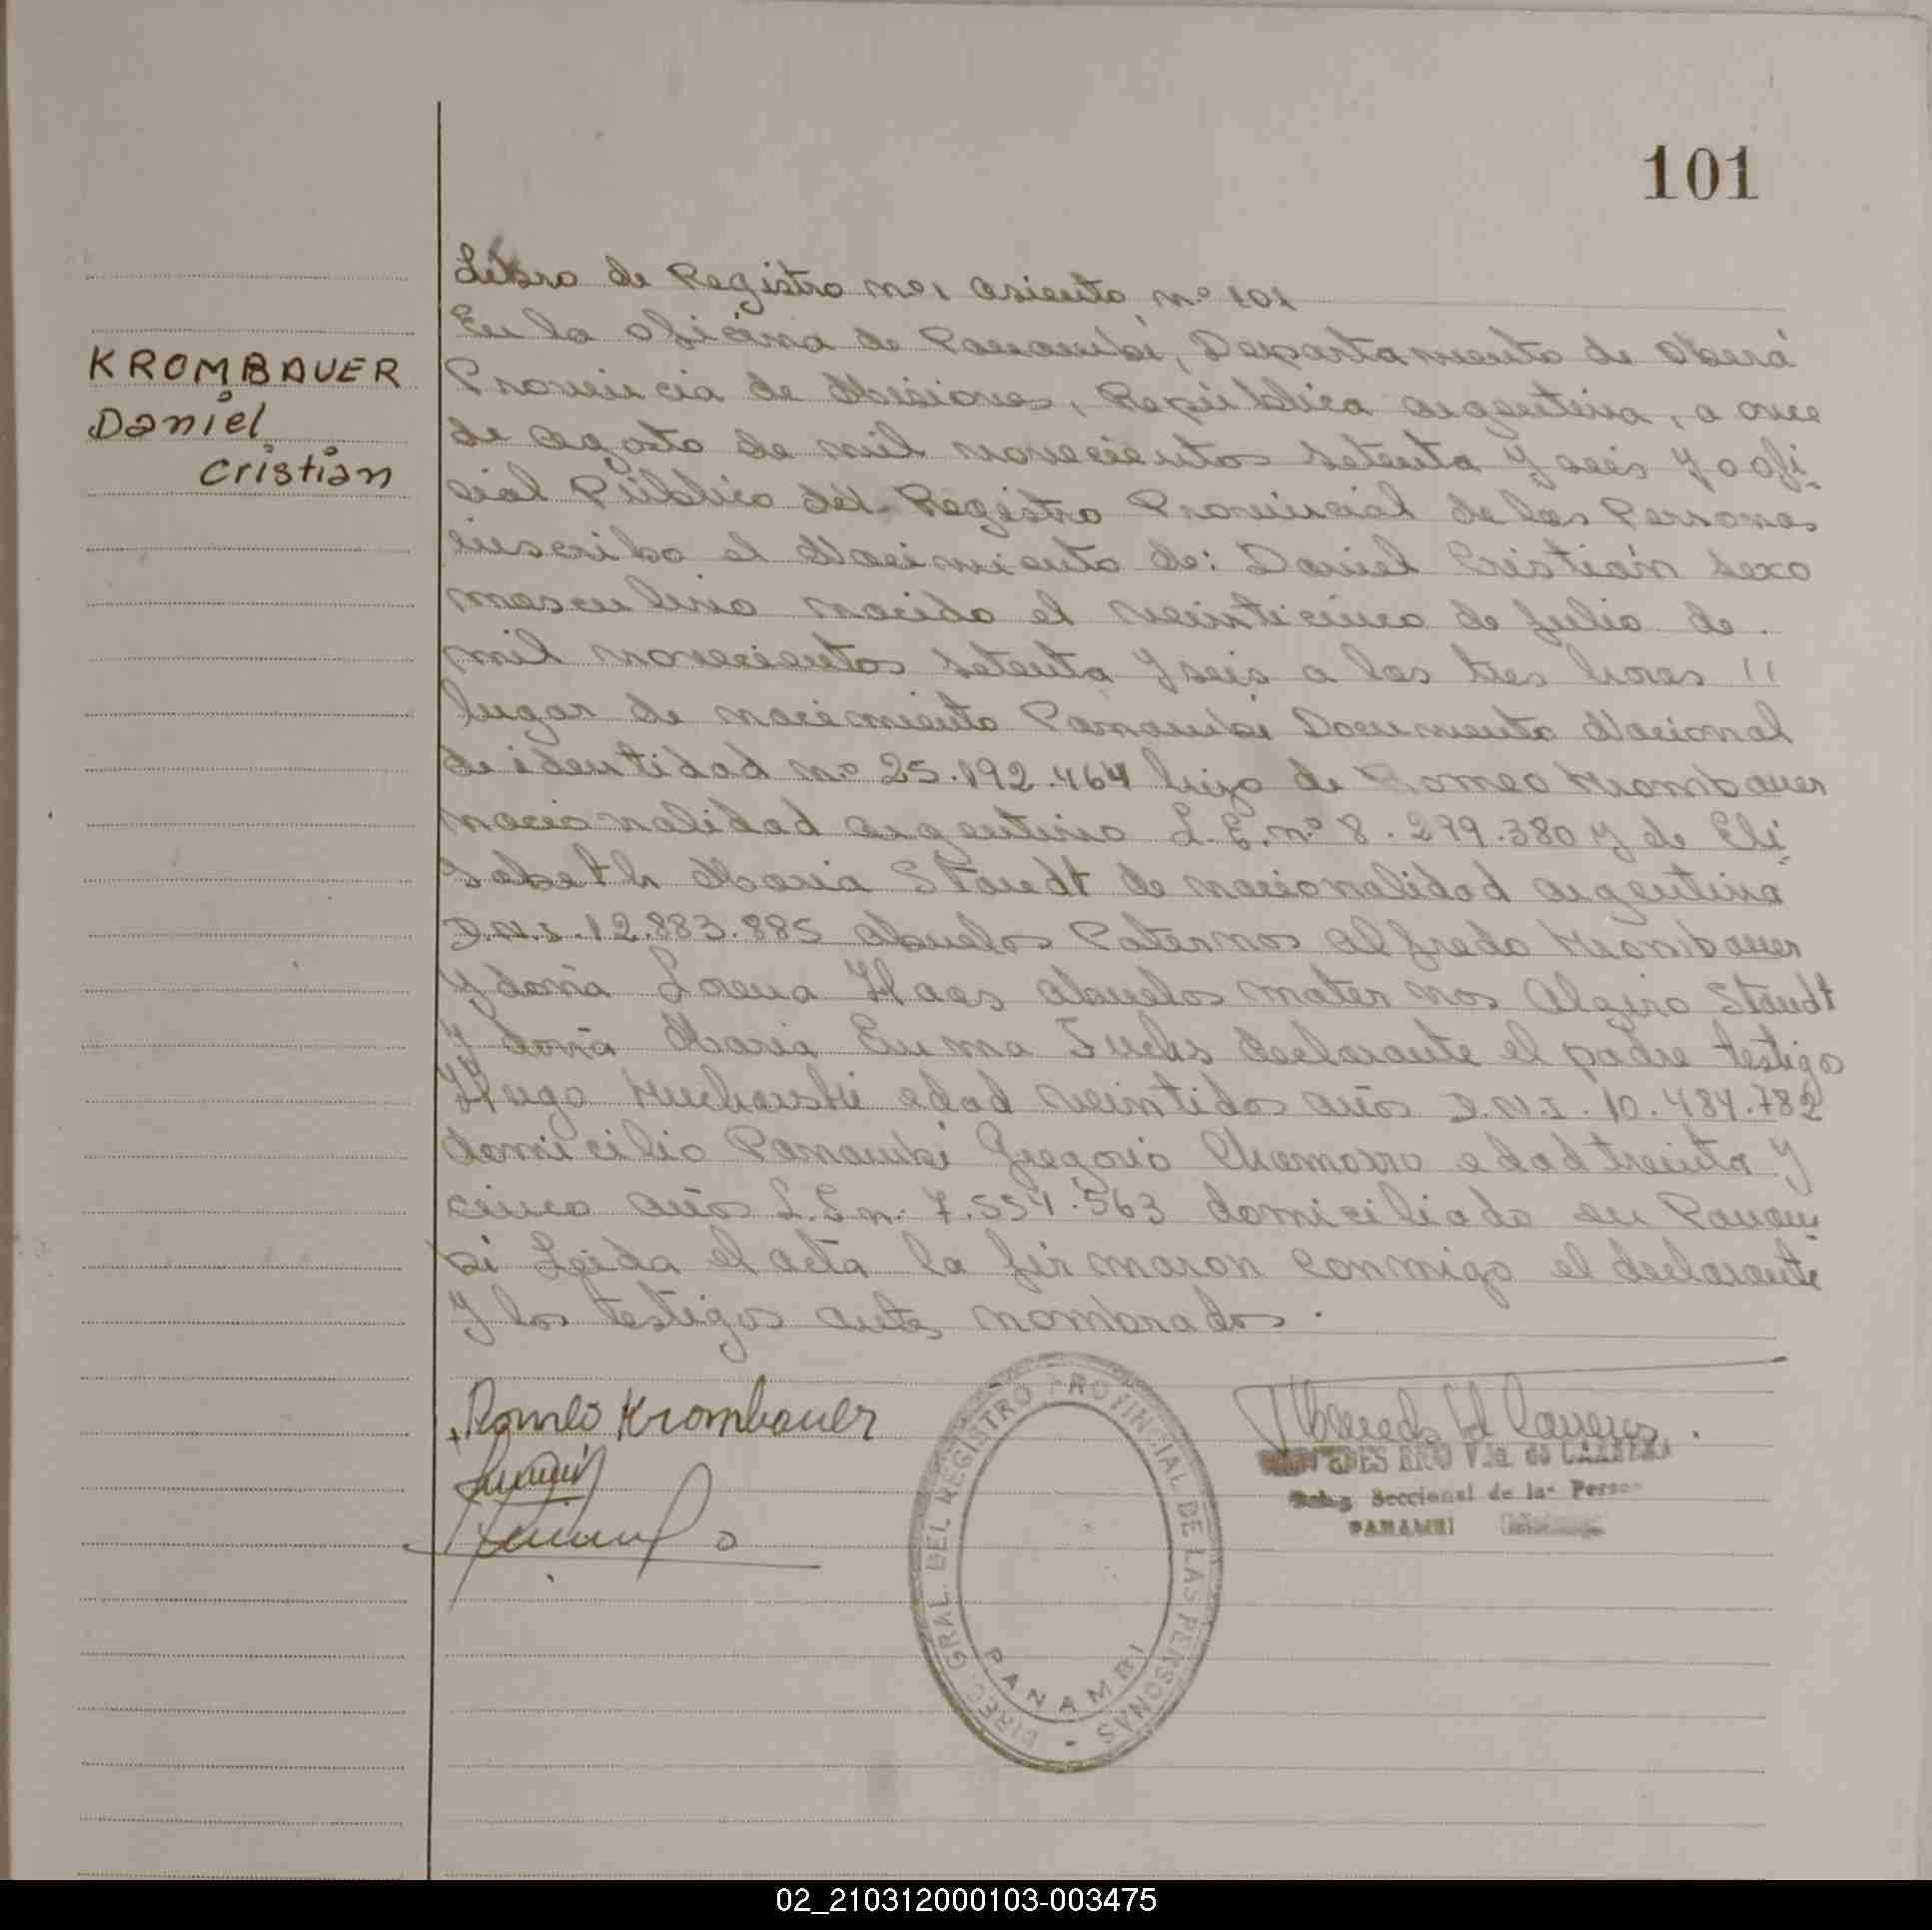 101
Libro de Registro nº 1 asiento nº 101
En la oficina de Panambí, Departamento de Oberá
KROMBAUER
Provincia de Misiones, República argentina, a once
Daniel
de agosto de mil novecientos setenta y seis yo ofi
Cristian
cial Público del Registro Provincial de las Personas
inscribo el Nacimiento de: Daniel Cristián sexo
masculino nacido el veinticinco de julio de.
mil novecientos setenta y seis a las tres horas "
lugar de nacimiento Panambi Documento Nacional
de identidad nº 25.192.464 hijo de Romeo Krombauer
nacionalidad argentino L.E. nº 8.299.380 y de Eli
sabeth Maria Staudt de nacionalidad argentina
D.N.I. 12.883.885 Abuelos Paternos Alfredo Krombauer
y doña Lorena Haas Abuelos maternos Staudt
y doña Maria Emma Fuchs declarante el padre testigo
Hugo edad veintidos años D.N.I. 10.484.782
domicilio Panambi Gregorio Chamorro edad treinta y
cinco años L.E n. 7.554.563 domiciliado en Panam
bi Leida el acta la firmaron conmigo el declarante
y los testigos antes nombrados.
Romeo Krombauer
DIREC. GRAL. DEL REGISTRO PROVINCIAL DE LAS PERSONAS -
PANAMBI
BRO Vda. de CARRERA
Seccional de las Perso
PANAMBI
02_210312000103-003475